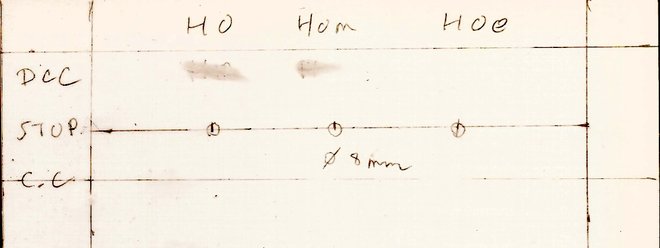 HO HOm HOe
DCC
STOP
Ø 8mm
C.C